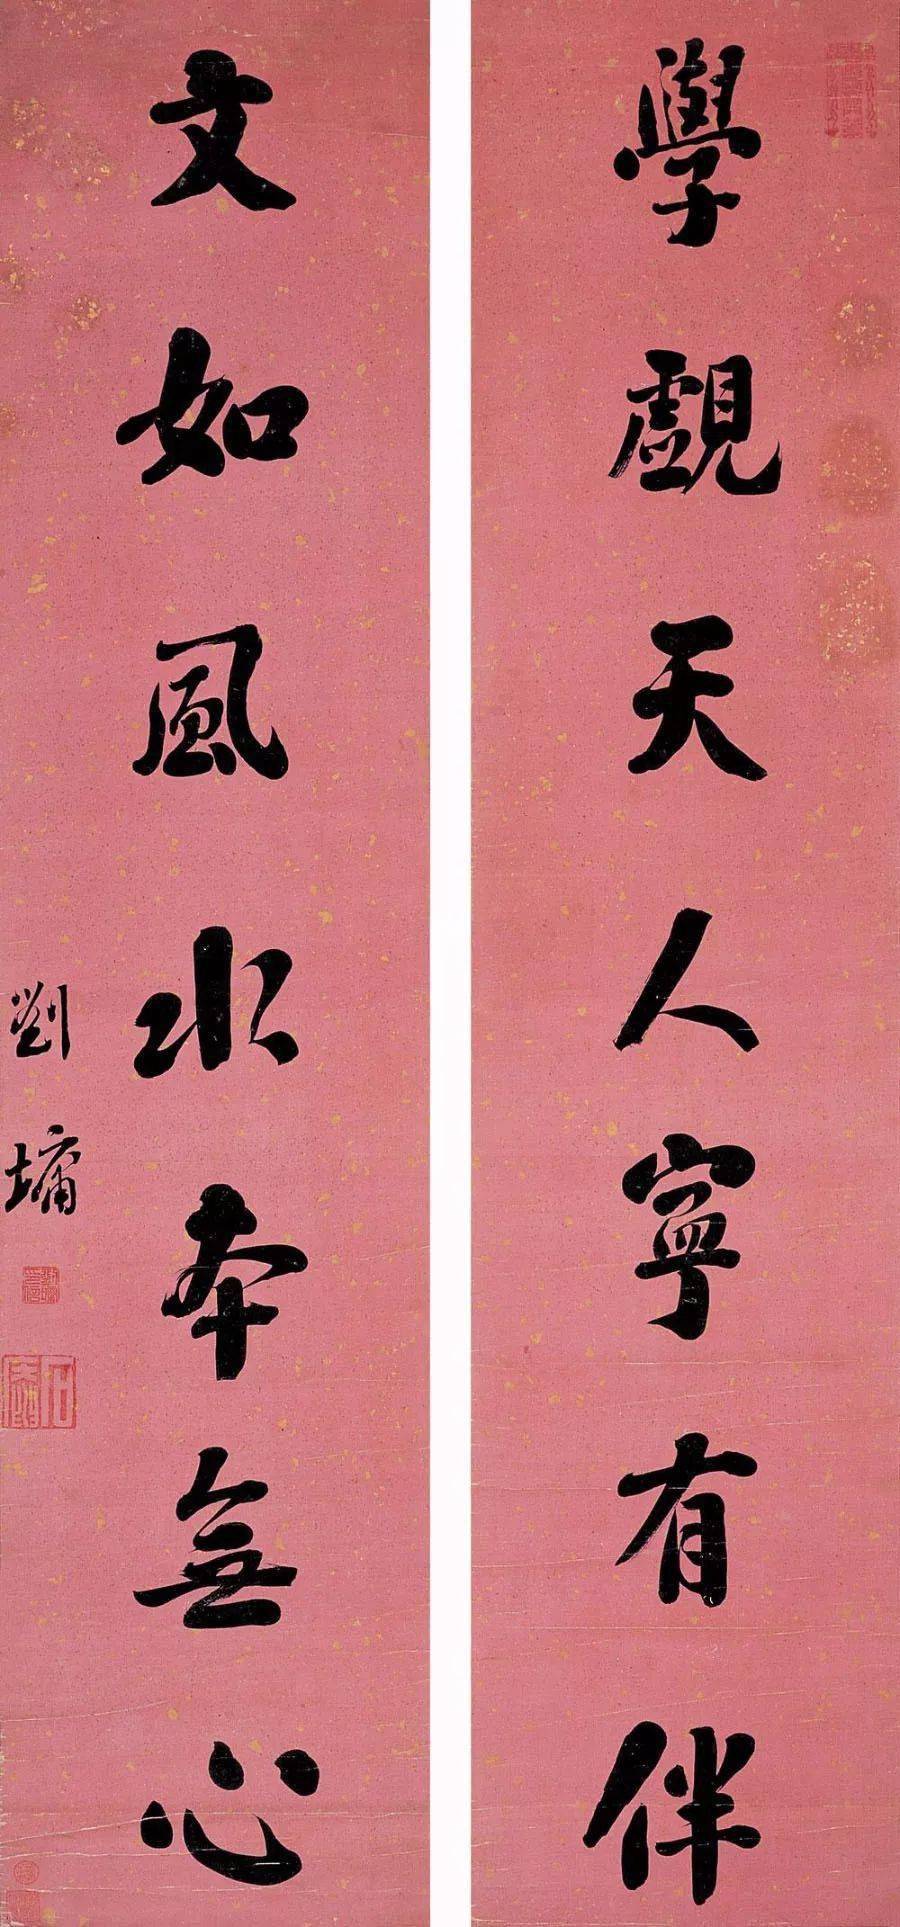 學覰天人寧有伴
文如風水本無心
劉墉